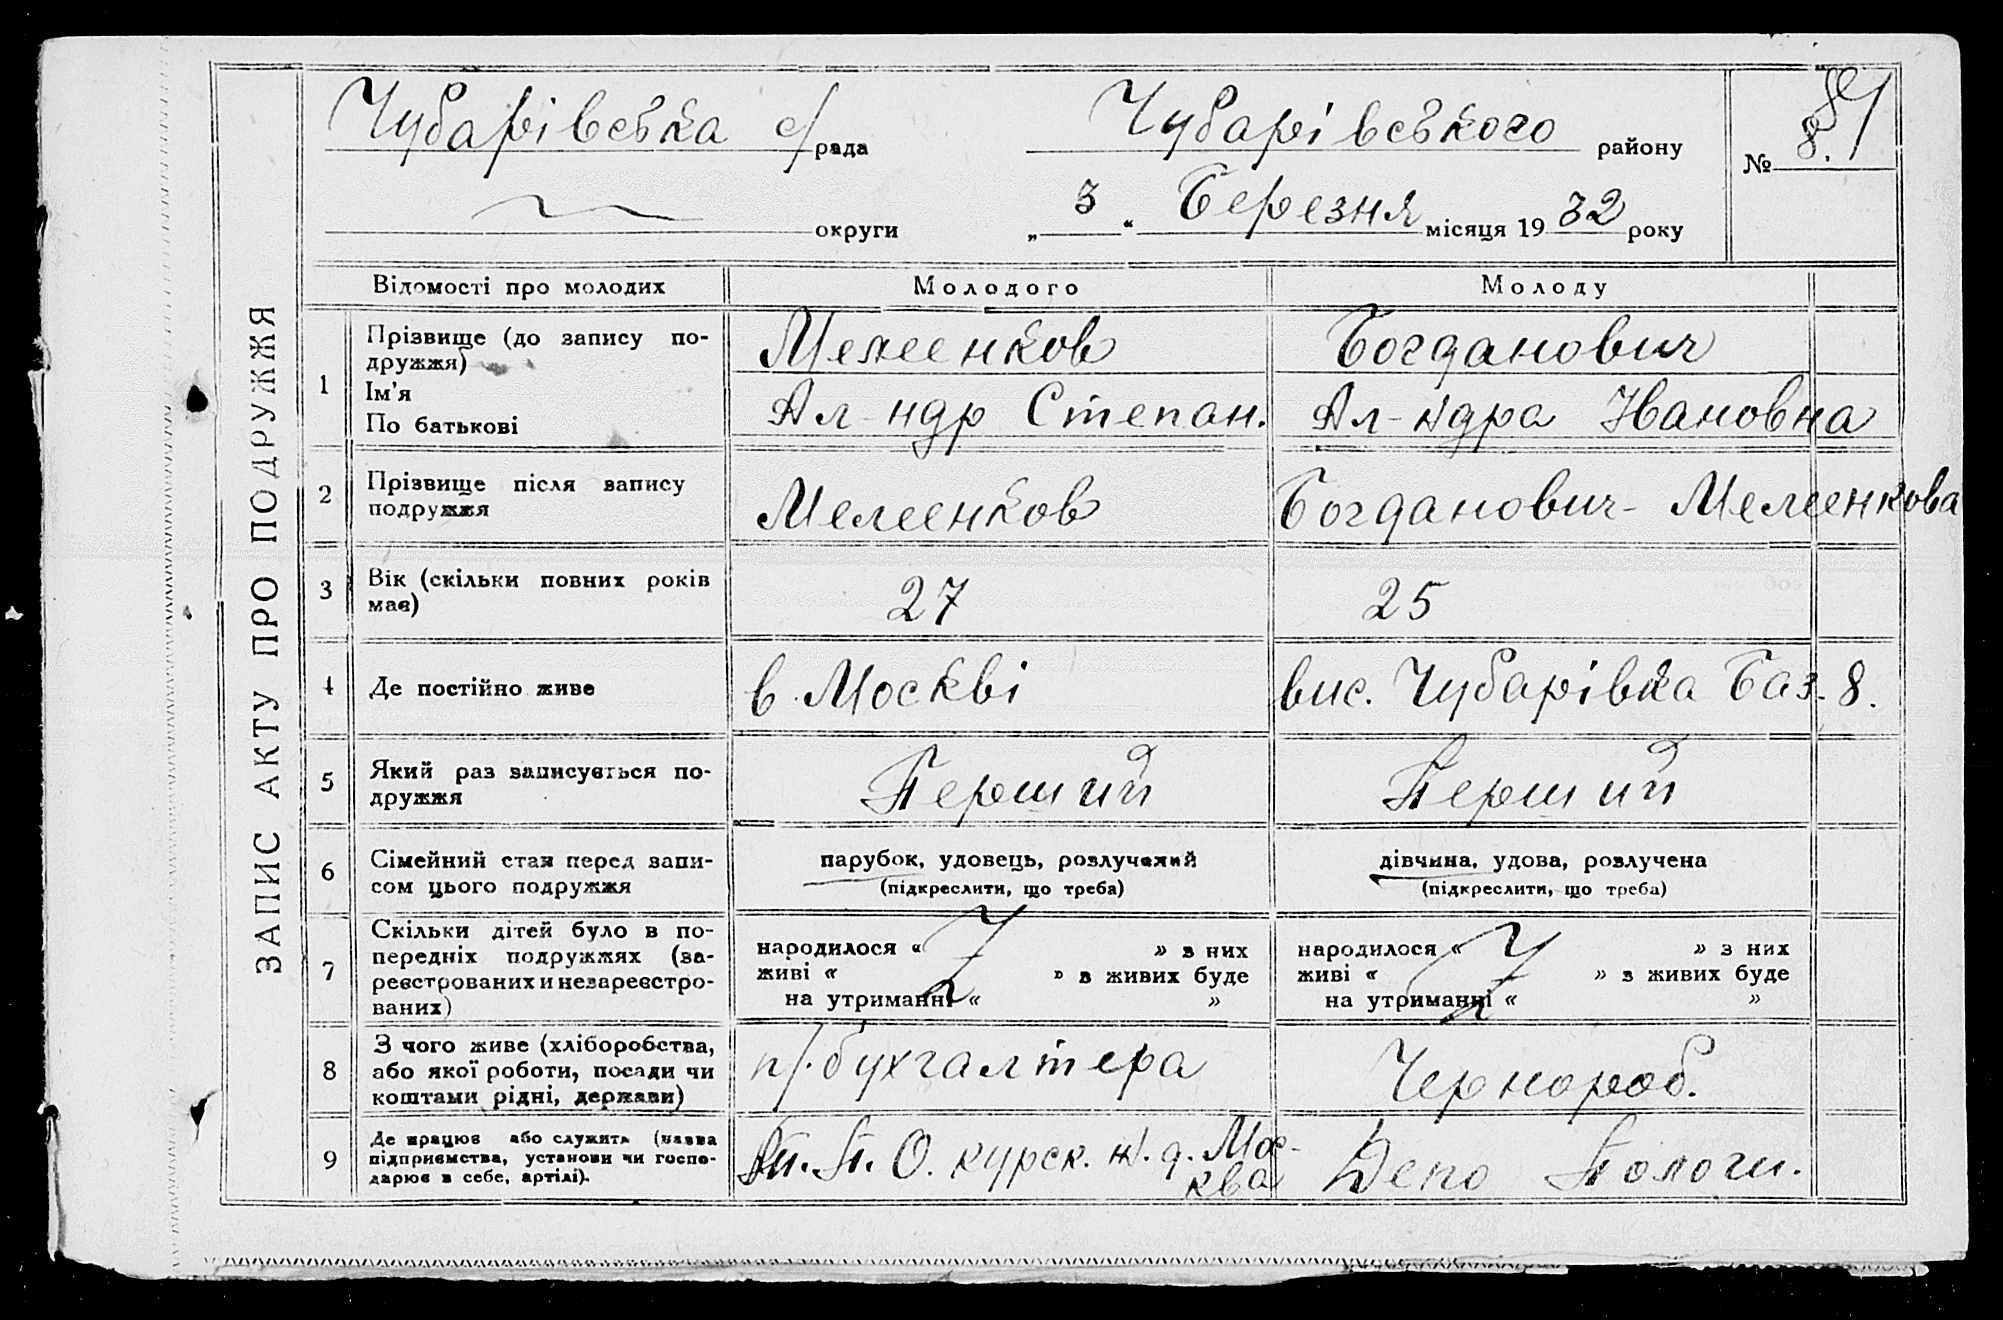 ЗАПИС АКТУ ПРО ПОДРУЖЖЯ
Чубарівська с/рада Чубарівського району № 8.
округи „3“ Березня місяця 1932 року
Відомості про молодих Молодого Молоду
1 Прізвище (до запису по-
дружжя) Мелеенков Богданович
Ім'я
По батькові Ал-ндр Степан. Ал-ндра Ивановна
2 Прізвище після запису
подружжя Мелеенков Богданович-Мелеенкова
3 Вік (скільки повних років
має) 27 25
4 Де постійно живе в Москві вис. Чубарівка Баз. 8.
5 Який раз записується по-
дружжя Перший Перший
6 Сімейний стан перед запи-
сом цього подружжя
парубок, удовець, розлучений
(підкреслити, що треба)
дівчина, удова, розлучена
(підкреслити, що треба)
7 Скільки дітей було в по-
передніх подружжях (за-
реєстрованих и незареєстро-
ваних)
народилося « » з них
живі « » з живих буде
на утриманні « »
народилося « » з них
живі « » з живих буде
на утриманні « »
8 З чого живе (хліборобства,
або якої роботи, посади чи
коштами рідні, держави)
п/бухгалтера Чернороб.
9 Де працює або служить (назва
підприємства, установи чи госпо-
дарює в себе, артілі).
П. О. курск. ж. д. Мос-
ква Депо Пологи.